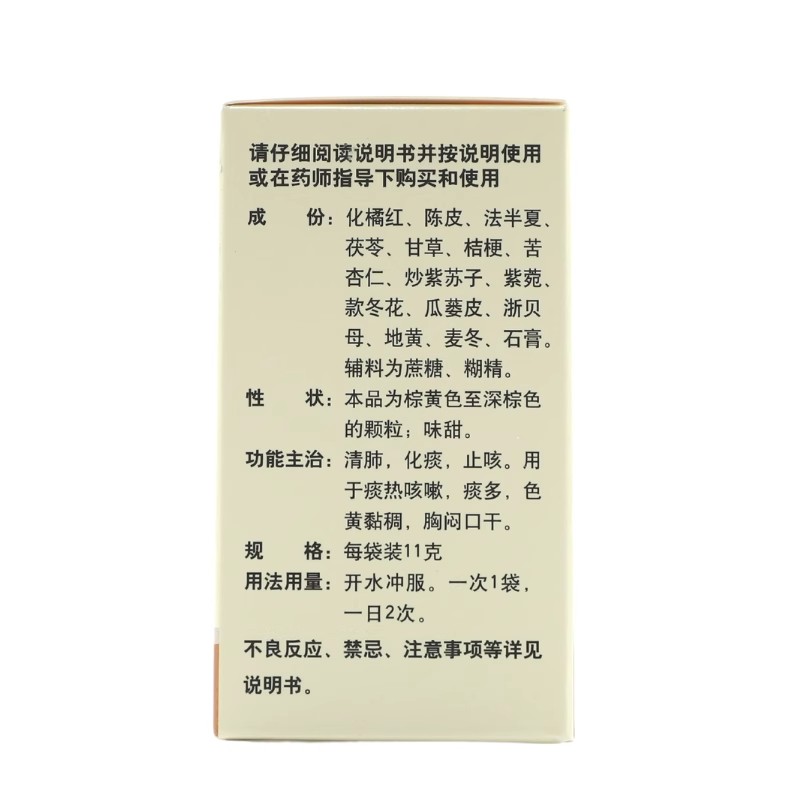 请仔细阅读说明书并按说明使用
或在药师指导下购买和使用
成　份：化橘红、陈皮、法半夏、
茯苓、甘草、桔梗、苦
杏仁、炒紫苏子、紫菀、
款冬花、瓜蒌皮、浙贝
母、地黄、麦冬、石膏。
辅料为蔗糖、糊精。
性　状：本品为棕黄色至深棕色
的颗粒；味甜。
功能主治：清肺，化痰，止咳。用
于痰热咳嗽，痰多，色
黄黏稠，胸闷口干。
规　格：每袋装11克
用法用量：开水冲服。一次1袋，
一日2次。
不良反应、禁忌、注意事项等详见
说明书。